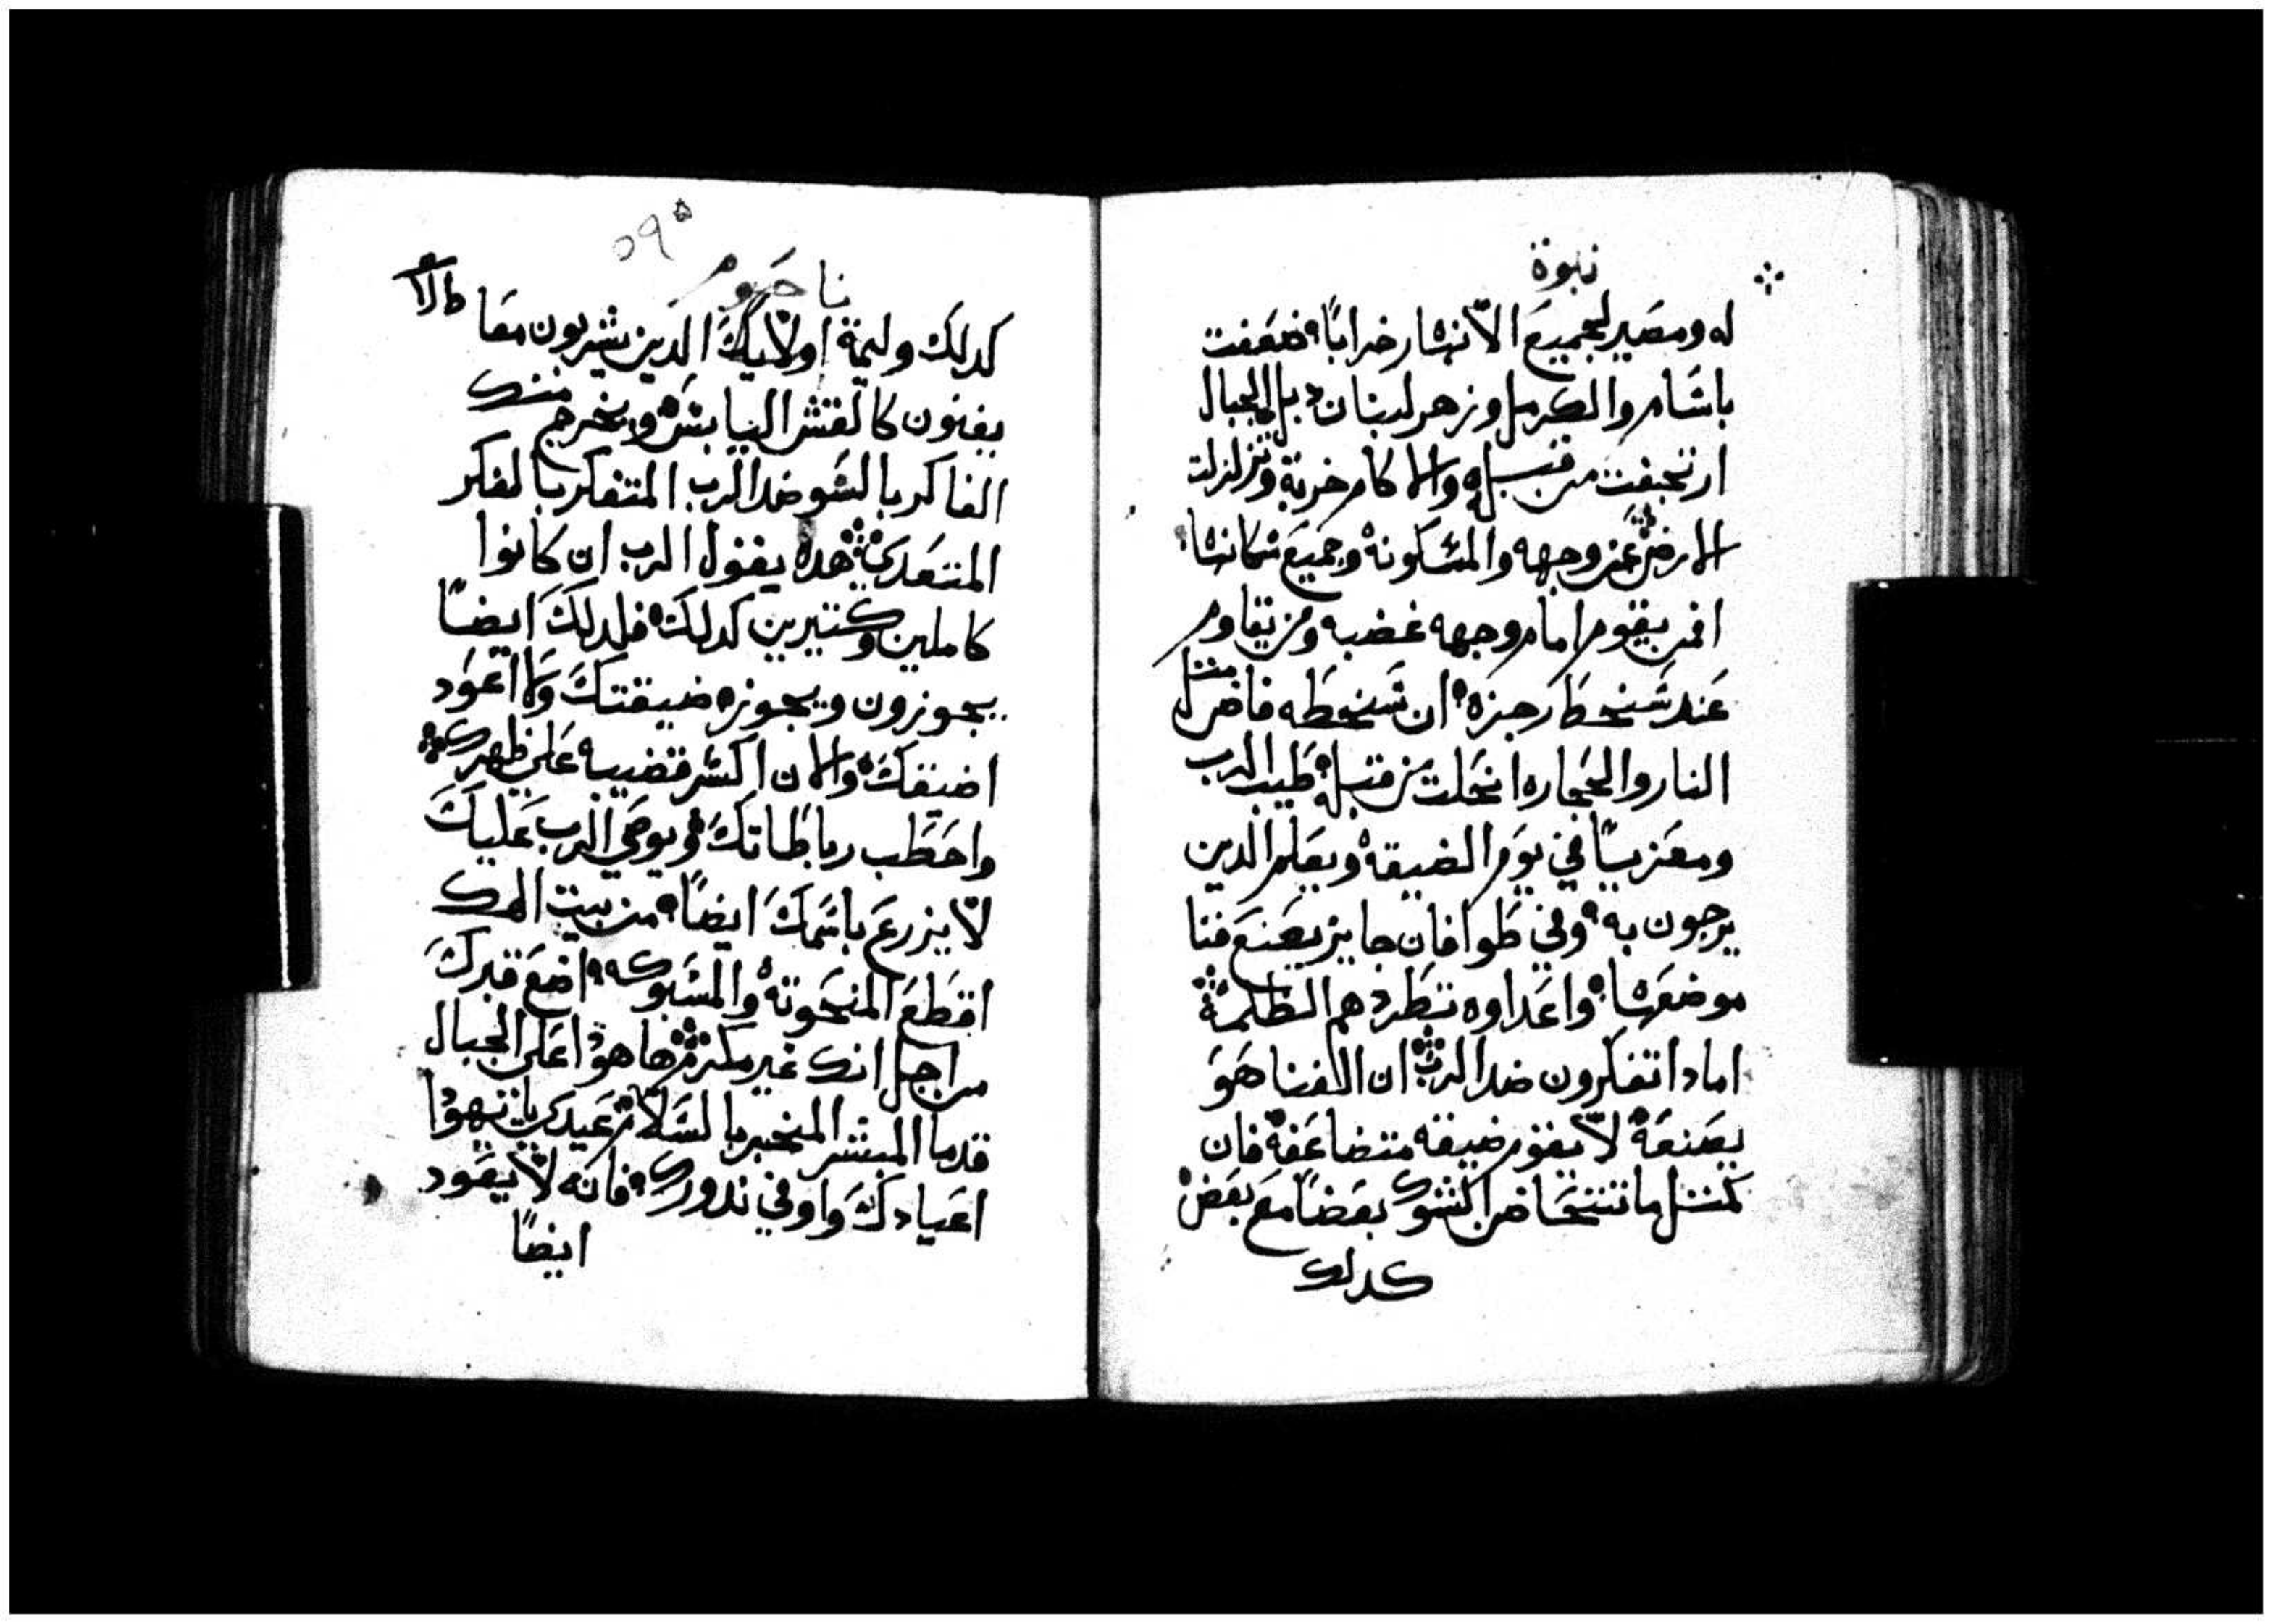 نبوة
له ومصير لجميع الانهار خرابا ضعفت
باشام والكرمل وزهر لبنان ذبل الجبال
ارتجفت من قبله والاكام خربة وتزلزلت
الارض عن وجهه والمسكونة وجميع سكانها
افمن يقوم امام وجهه غضبه ومن يقاوم
عند سخط رجزه ان سخطه فاض مثل
النار والحجاره انحلت من قبله طيب الرب
ومعزيا في يوم الضيقه ويعلم الذين
يرجون به وفي طوافان جايز يصنع فنا
موضعها واعداوه تطردهم الظلمة
اماذا تفكرون ضد الرب ان الفنا هو
يصنعه لا يقوم ضيقه متضاعفة فان
كمثل ما تتنحا ضر الشوك بعضا مع بعض
كدلك
٥٩٥
ناحوم
كدلك وليمة اولايك الدين يشربون معا
يفنون كالقش اليابس ويخرج منك
الفاكر بالسو ضد الرب المتفكر بالفكر
المتعدي هده يقول الرب ان كانوا
كاملين وكثيرين كدلك فلدلك ايضا
يجوزون ويجوزه ضيقتك ولا اعود
اضيقك والان اكسر قضيبه على ظهرك
واحطب رباطاتك ويوصي الرب عليك
لا يزرع باسمك ايضا من بيت الهك
اقطع المنحوته والمسبوكه اضع قبرك
من اجل انك غير مكرم ها هودا على الجبال
قدما المبشر المخبر بالسلام عيدي يا يهودا
اعيادك واوفي ندورك فانه لا يعود
ايضا